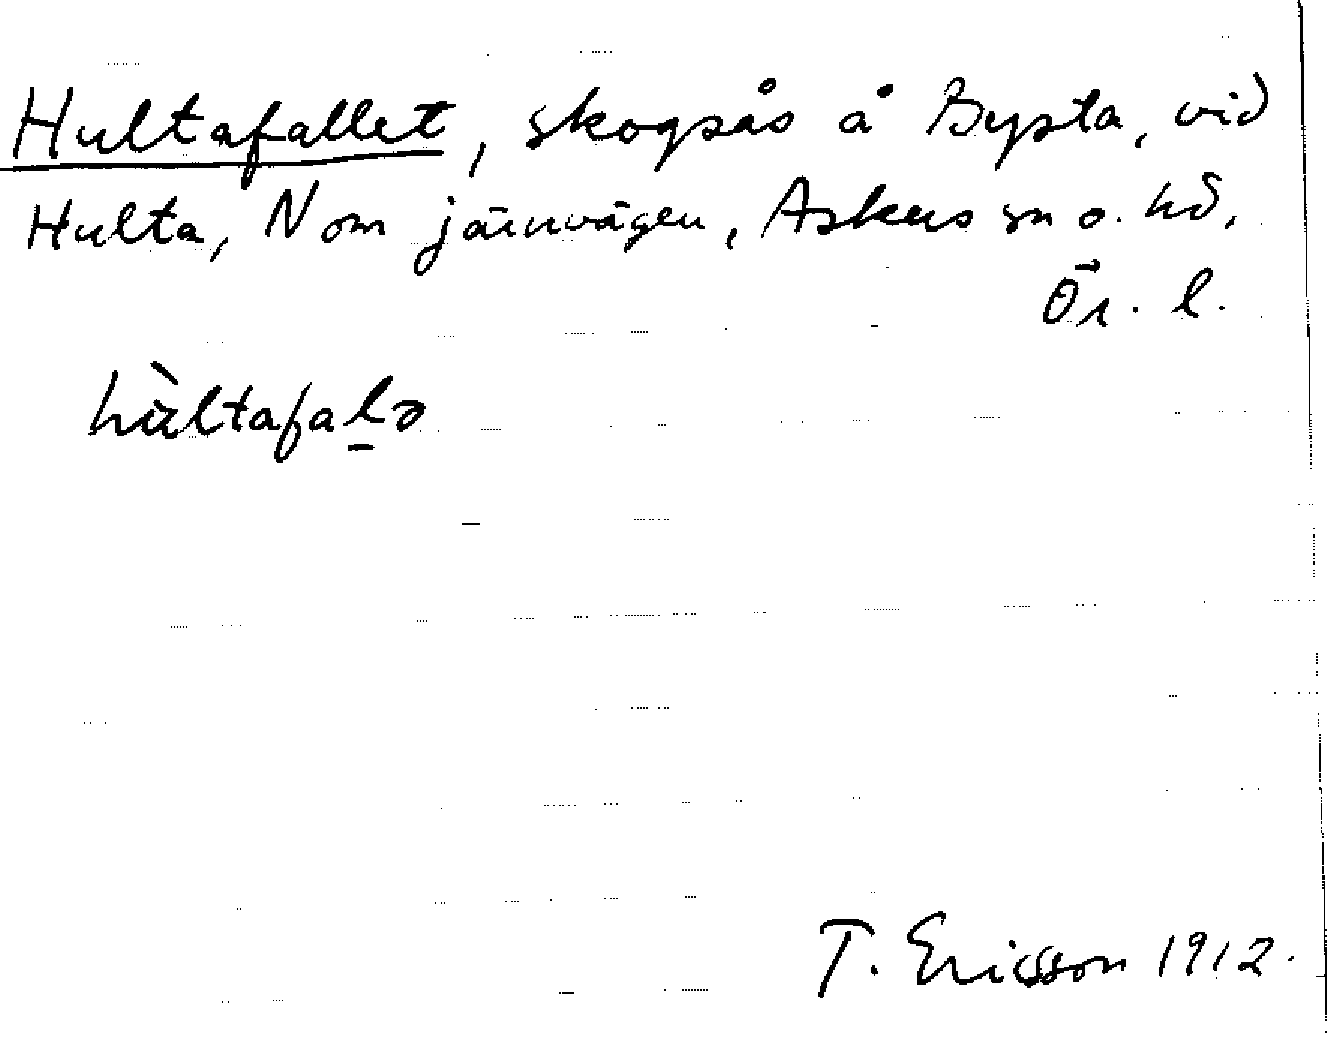 Hultafallet, skogsås å Bysta, vid
Hulta, N om järnvägen, Askers sn o. hd,
Ör. l.
hùltafal̲ə
T. Ericsson 1912.